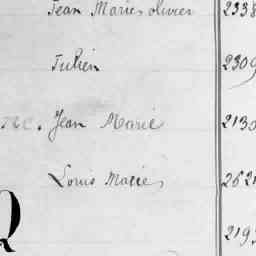 Jean Marie olivier 2338
Julien 2309
Jean Marie 2130
Louis Marie 2621
Q 2195